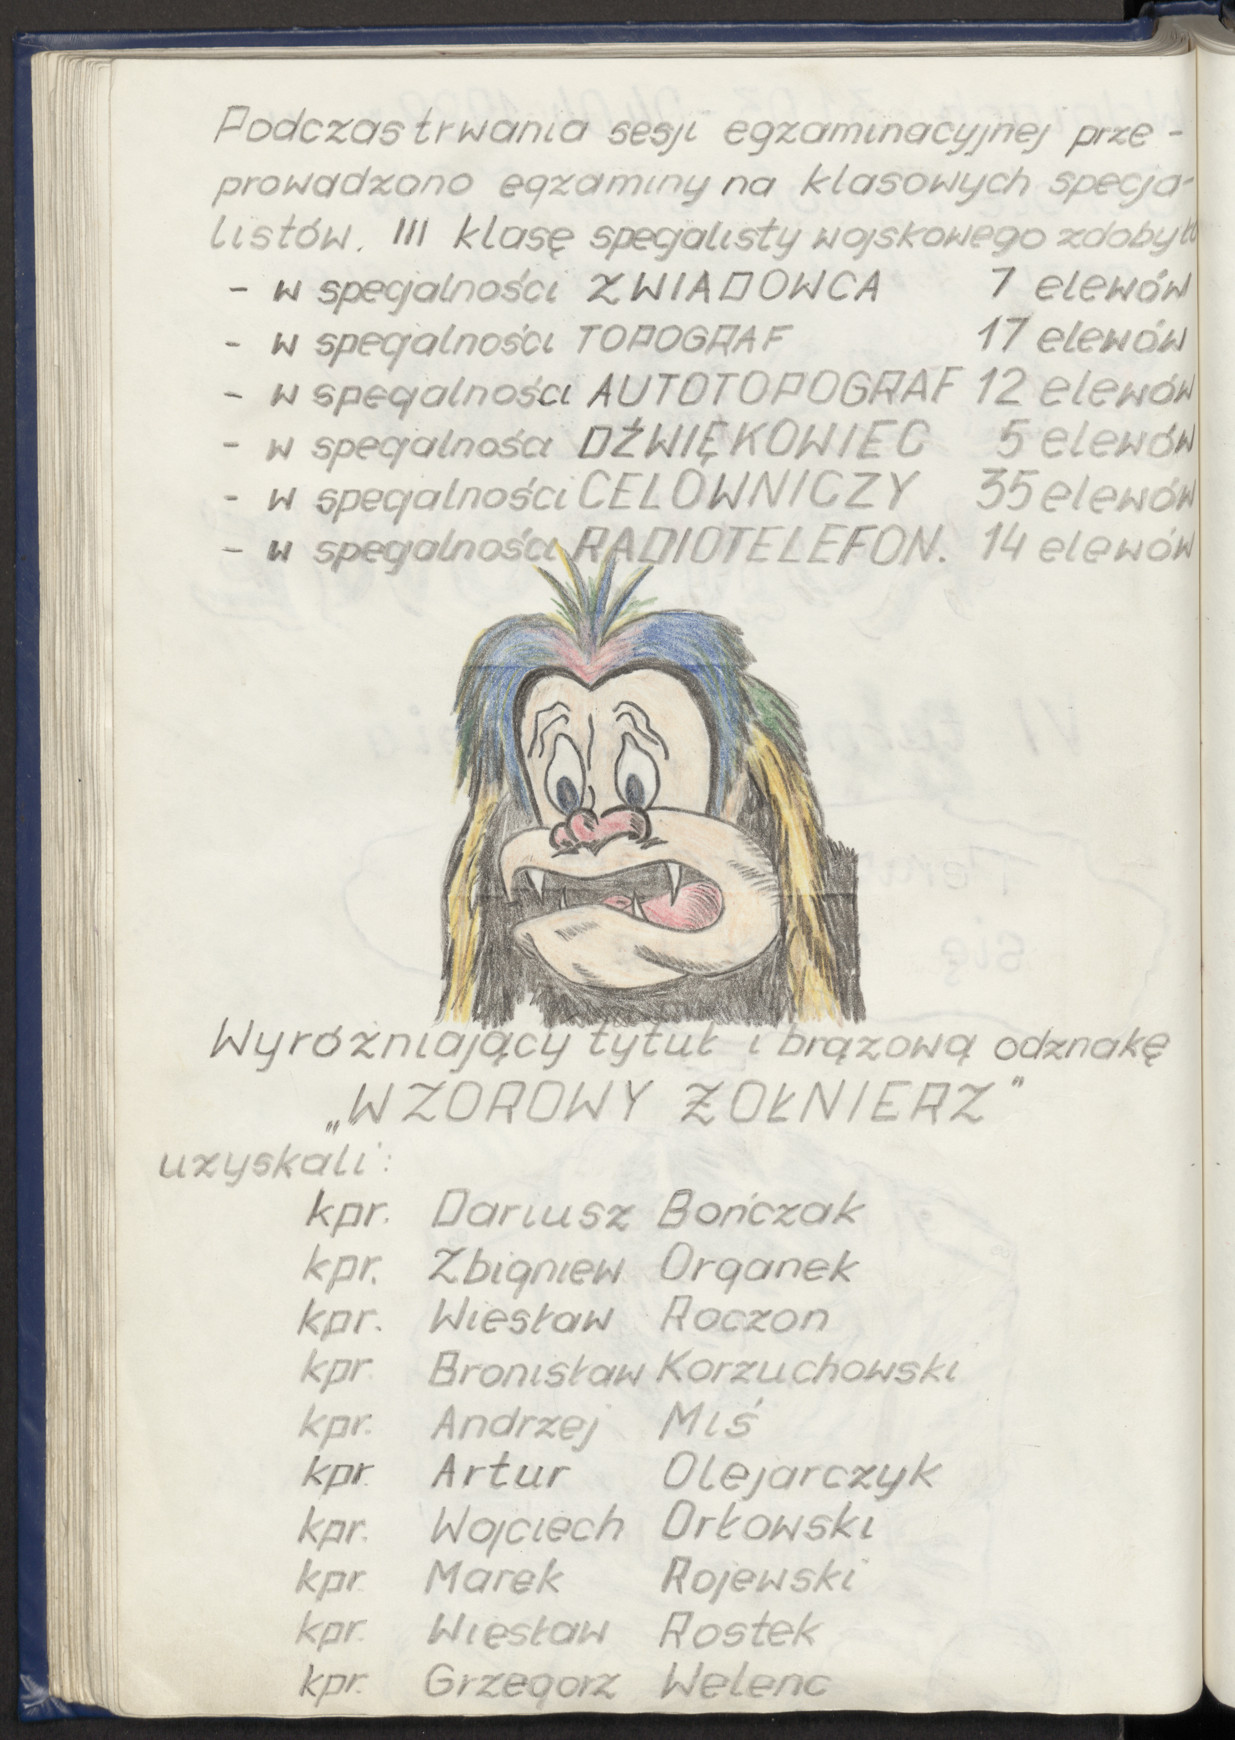 Podczas trwania sesji egzaminacyjnej prze-
prowadzono egzaminy na klasowych specja-
listów. III klasę specjalisty wojskowego zdobyło
- w specjalności ZWIADOWCA 7 elewów
- w specjalności TOPOGRAF 17 elewów
- w specjalności AUTOTOPOGRAF 12 elewów
- w specjalności DŹWIĘKOWIEC 5 elewów
- w specjalności CELOWNICZY 35 elewów
- w specjalności RADIOTELEFON. 14 elewów
Wyróżniający tytuł i brązową odznakę
„WZOROWY ŻOŁNIERZ"
uzyskali:
kpr. Dariusz Bończak
kpr. Zbigniew Organek
kpr. Wiesław Roczon
kpr. Bronisław Korzuchowski
kpr. Andrzej Miś
kpr. Artur Olejarczyk
kpr. Wojciech Orłowski
kpr. Marek Rojewski
kpr. Wiesław Rostek
kpr. Grzegorz Welenc